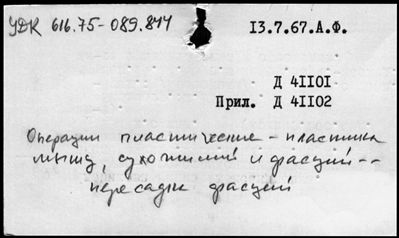 УДК 616.75-089.844
13.7.67.А.Ф.
Д 41101
Прил. Д 41102
Операции пластические - пластика
мышц, сухожилий и фасций --
пересадка фасций